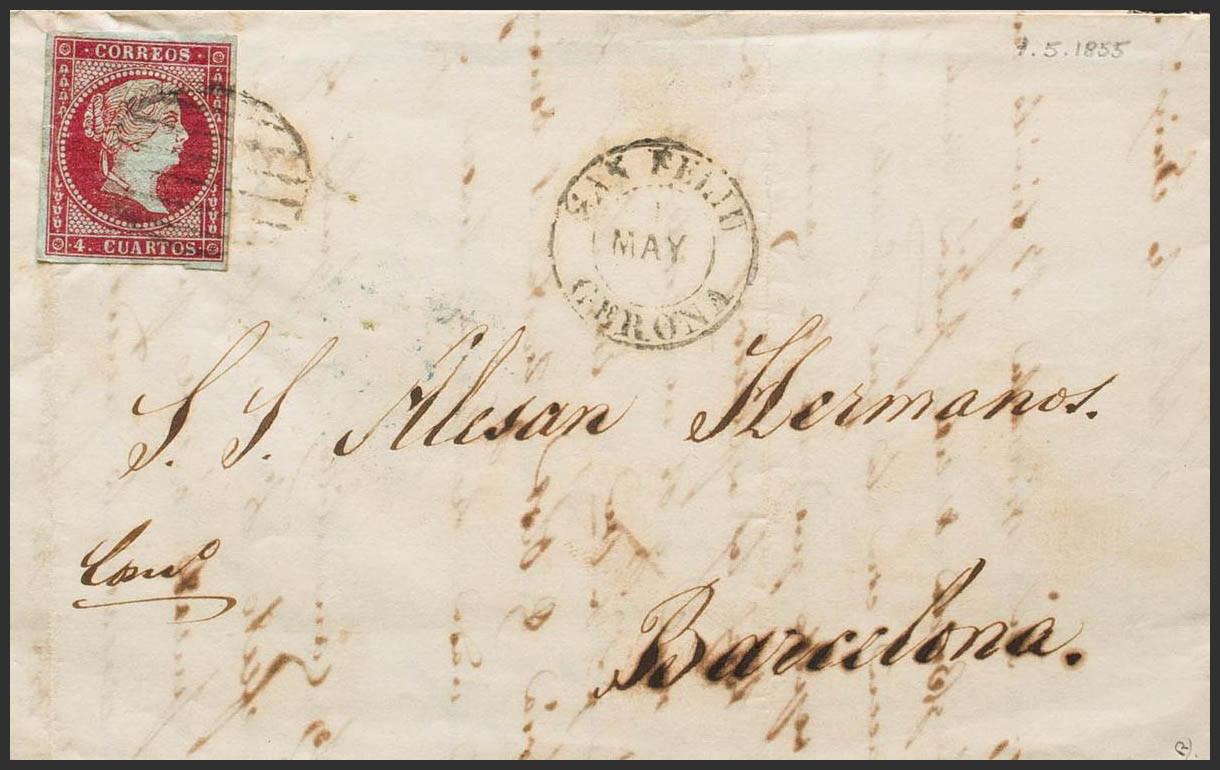 · CORREOS ·
4. CUARTOS.
1.5.1855
SAN FELIU
1
MAY.
GERONA
S. S. Alesan Hermanos.
Barcelona.